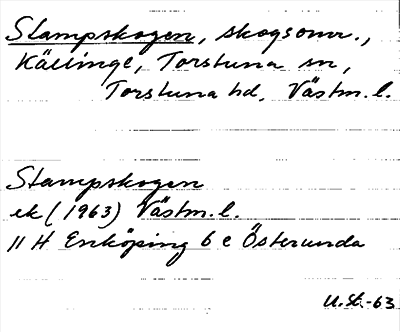 Stampskogen, skogsomr.,
Källinge, Torstuna sn,
Torstuna hd, Västm. l.
Stampskogen
ek (1963) Västm. l.
11 H Enköping 6 e Österunda
U.St.-63